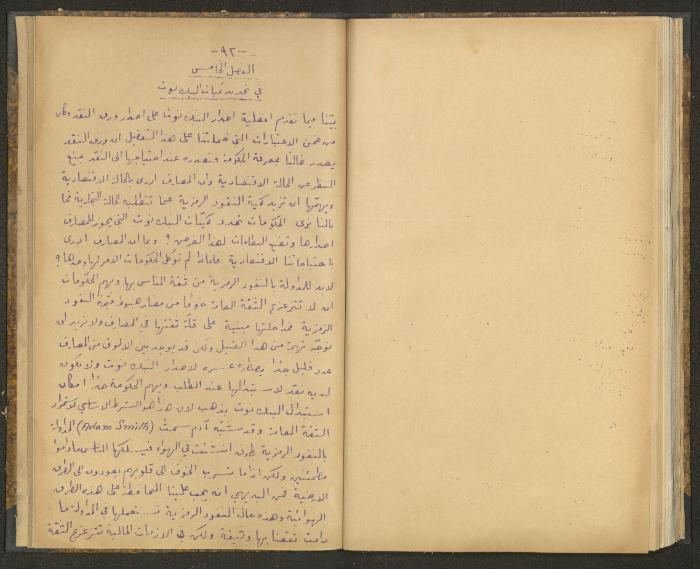 -٩٢-
الفصل الخامس
في تحديد كميات البنك نوت
بيّنا فيما تقدم افضلية اصدار البنك نوت على اصدار ورق النقد وكان
من ضمن الاعتبارات التي حملتنا على هذا التفضيل ان ورق النقد
يصدر غالباً بمعرفة الحكومة وتصدره عند احتياجها الى النقد بمنع
النظر عن الحالة الاقتصادية وان المصارف ادرى بالحالة الاقتصادية
ويهمّها ان تزيد كمية النقود الرمزية عما تتطلبه الحالة التجارية فما
بالنا نرى الحكومات تحدد كميّات البنك نوت التي يجوز للمصارف
اصدارها وتضع النظامات لهذا الغرض ؟ وبما ان المصارف ادرى
باحتياجاتنا الاقتصادية فلماذا لم توكل الحكومات الامر لها وحدها ؟
لابد للمداولة بالنقود الرمزية من ثقة الناس بها ويهم الحكومات
ان لا تتزعزع الثقة العامة خوفاً من مضار هبوط قيمة النقود
الرمزية فمداخلتها مبنية على قلّة ثقتها في المصارف ولا نريد ان
نوجّه تهمة من هذا القبيل ولكن قد يوجد بين الالوف من المصارف
عدد قليل جداً يضطره عسره لاصدار البنك نوت ولا يكون
لديه نقد لاستبدالها عند الطلب ويهم الحكومة جداً امكان
استبدال البنك نوت بذهب لان هذا هو الشرط الاساسي لاستمرار
الثقة العامة وقد شبّه آدم سميث (Adam Smith) المداولة
بالنقود الرمزية بطرق انشئت في الهواء فيسلكها الناس ماداموا
مطمئنين ولكن اذا ما تسرب الخوف الى قلوبهم يعودون الى الطرق
الارضية فمن البديهي انه يجب علينا المحافظة على هذه الطرق
الهوائية وهذه حال النقود الرمزية نستعملها في المداولة ما
دامت ثقتنا بها وثيقة ولكن في الازمات المالية تتزعزع الثقة